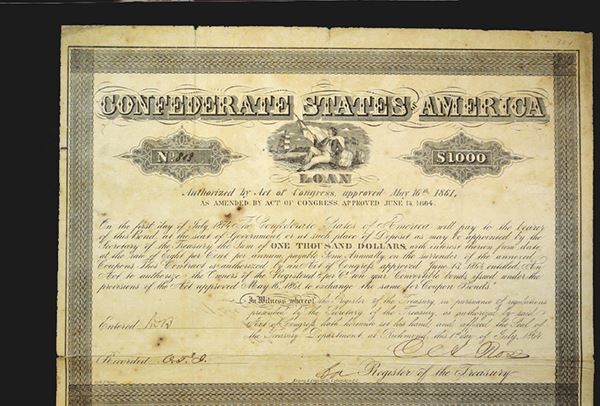 CONFEDERATE STATES OF AMERICA
No.
$1000
LOAN
Authorized by Act of Congress, approved May 16th 1861,
AS AMENDED BY ACT OF CONGRESS, APPROVED JUNE 13, 1864.
On the first day of July the Confederate States of America will pay to the bearer
of this Bond, at the seat of Government or at such place of Deposit as may be appointed by the
Secretary of the Treasury, the Sum of ONE THOUSAND DOLLARS, with interest thereon from date
at the rate of Eight per Cent per annum, payable Semi Annually on the surrender of the annexed
Coupons. This Contract is authorized by an Act of Congress approved June 13, 1864 entitled An
Act to authorize the Owners of the Registered per Ct loan Convertible bonds, issued under the
provisions of the Act approved May 16, 1861 to exchange the same for Coupon Bonds
In Witness whereof the Register of the Treasury, in pursuance of regulations
prescribed by the Secretary of the Treasury, as authorized by said
Act of Congress, hath hereunto set his hand, and affixed the Seal of
the Treasury Department, at Richmond, this 1st day of July, 1864.
Entered
Recorded
Register of the Treasury